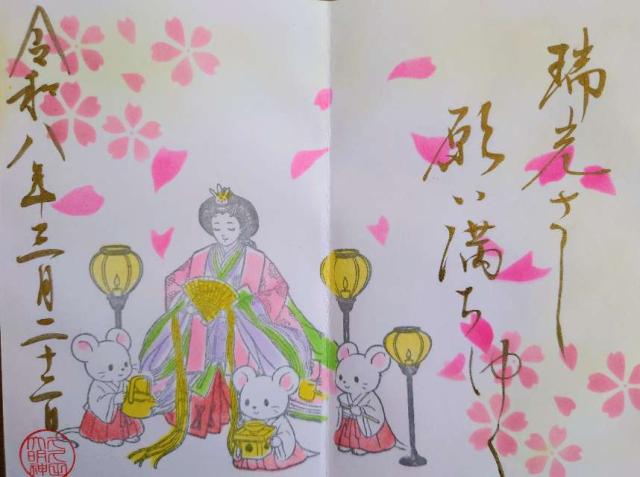 瑞光さし
願い満ちゆく
令和八年三月二十二日
大明神